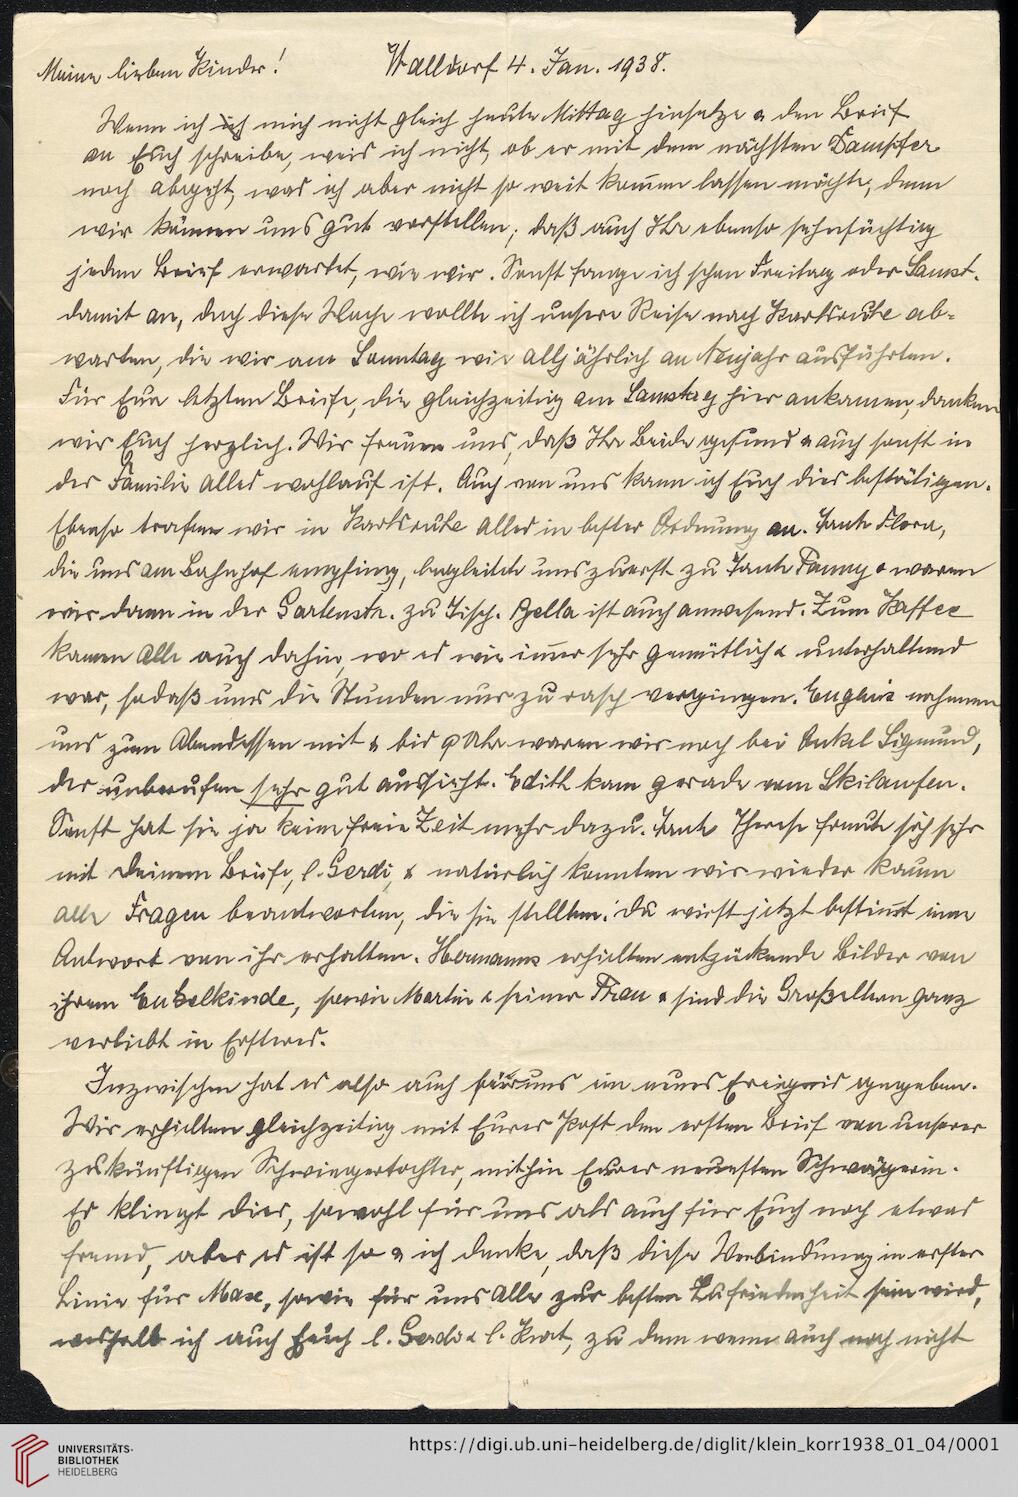 Meine lieben Kinder! Walldorf 4. Jan. 1938.
Wenn ich ich mich nicht gleich heute Mittag hinsetze & den Brief
an Euch schreibe, weis ich nicht, ob er mit dem nächsten Dampfer
noch abgeht, was ich aber nicht so weit kom̄en lassen möchte, denn
wir können uns gut vorstellen, daß auch Ihr ebenso sehnsüchtig
jeden Brief erwartet, wie wir. Sonst fange ich schon Freitag oder Samst.
damit an, doch diese Woche wollte ich unsere Reise nach Karlsruhe ab-
warten, die wir am Sonntag wie alljährlich an Neujahr ausführten.
Für Eure letzten Briefe, die gleichzeitig am Samstag hier ankamen, danken
wir Euch herzlich. Wir freuen uns, daß Ihr Beide gesund & auch sonst in
der Familie alles wohlauf ist. Auch von uns kann ich Euch dies bestätigen.
Ebenso trafen wir in Karlsruhe alles in bester Ordnung an. Tante Flora,
die uns am Bahnhof empfing, begleitete uns zuerst zu Tante Fanny & waren
wir dann in der Gartenstr. zu Tisch. Bella ist auch anwesend. Zum Kaffee
kamen alle auch dahin, wo es wie im̄er sehr gemütlich & unterhaltend
war, sodaß uns die Stunden nur zu rasch vergingen. Eugens nahmen
uns zum Abendessen mit & bis 9 Uhr waren wir noch bei Onkel Sigmund,
der unberufen sehr gut aussieht. Edith kam gerade vom Skilaufen.
Sonst hat sie ja keine freie Zeit mehr dazu. Tante Therese freute sich sehr
mit Deinem Briefe, l. Gerdi, & natürlich konnten wir wieder kaum
alle Fragen beantworten, die sie stellten. Du wirst jetzt bestim̄t eine
Antwort von ihr erhalten. Hermanns erhielten entzückende Bilder von
ihrem Enkelkinde, sowie Martin & seiner Frau & sind die Großeltern ganz
verliebt in Ersteres.
Inzwischen hat es also auch für uns ein neues Ereignis gegeben.
Wir erhielten gleichzeitig mit Eurer Post den ersten Brief von unserer
zukünftigen Schwiegertochter, mithin Eurer neuesten Schwägerin.
Es klingt dies, sowohl für uns als auch für Euch noch etwas
fremd, aber es ist so & ich denke, daß diese Verbindung in erster
Linie für Max, sowie für uns alle zur besten Zufriedenheit sein wird,
weshalb ich auch Euch l. Gerdi & l. Kurt, zu dem wenn auch noch nicht
UNIVERSITÄTS-
BIBLIOTHEK
HEIDELBERG
https://digi.ub.uni-heidelberg.de/diglit/klein_korr1938_01_04/0001